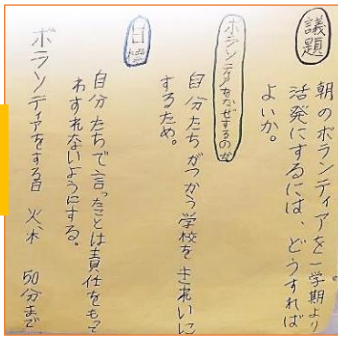 議題
朝のボランティアを一学期より
活発にするには、どうすれば
よいか。
ボランティアをなぜするのか
自分たちがつかう学校をきれいに
するため。
目標
自分たちで言ったことは責任をもって
わすれないようにする。
ボランティアをする日 火、木 50分まで